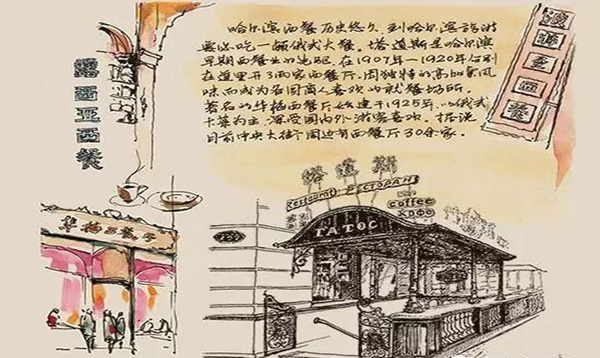 哈尔滨西餐历史悠久,到哈尔滨旅游
要必吃一顿俄式大餐。塔道斯是哈尔滨
早期西餐业的先驱,在1907年-1920年分别
在道里开了两家西餐厅,因独特的高加索风
味而成为各国商人喜欢的就餐场所。
著名的华梅西餐厅始建于1925年,以俄式
大菜为主,深受国内外游客喜欢。据说
目前中央大街周边有西餐厅30余家。
露西亚西餐
西餐
华梅西餐厅
塔道斯
restaurant РЕСТОРАН
coffee
ТАТОС